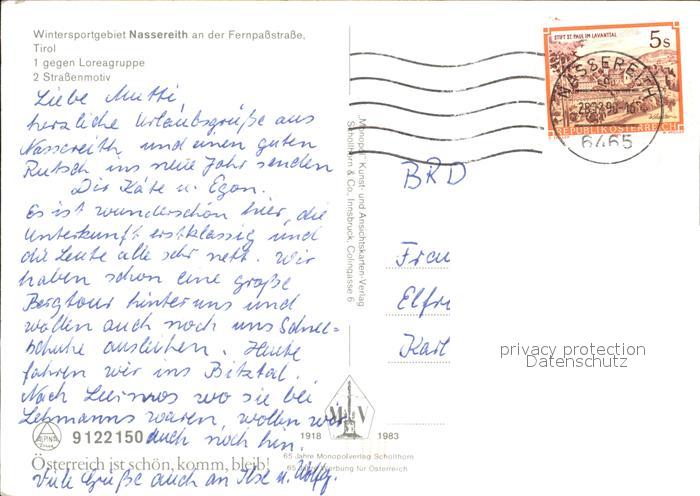 Wintersportgebiet Nassereith an der Fernpaßstraße,
Tirol
1 gegen Loreagruppe
2 Straßenmotiv
Liebe Mutti,
herzliche Urlaubsgrüße aus
Nassereith und einen guten
Rutsch ins neue Jahr senden
Dir Käte u. Egon.
Es ist wunderschön hier, die
Unterkunft erstklassig und
die Leute alle sehr nett. Wir
haben schon eine große
Bergtour hinter uns und
wollen auch noch uns Schnee-
schuhe ausleihen. Heute
fahren wir ins Pitztal.
Nach Lermoos wo sie bei
Lehmanns waren, wollen wir
auch noch hin.
Viele Grüße auch an Ilse u. Wolfg.
ALPINA
9122150
Österreich ist schön, komm, bleib!
"Monopol" Kunst- und Ansichtskarten-Verlag
Schöllhorn & Co., Innsbruck, Colingasse 6
M V
1918 1983
65 Jahre Monopolverlag Schöllhorn
65 Jahre Werbung für Österreich
STIFT ST. PAUL IM LAVANTTAL
5 S
REPUBLIK ÖSTERREICH
NASSEREITH
6465
BRD
Frau
Elfri
Karl
privacy protection
Datenschutz